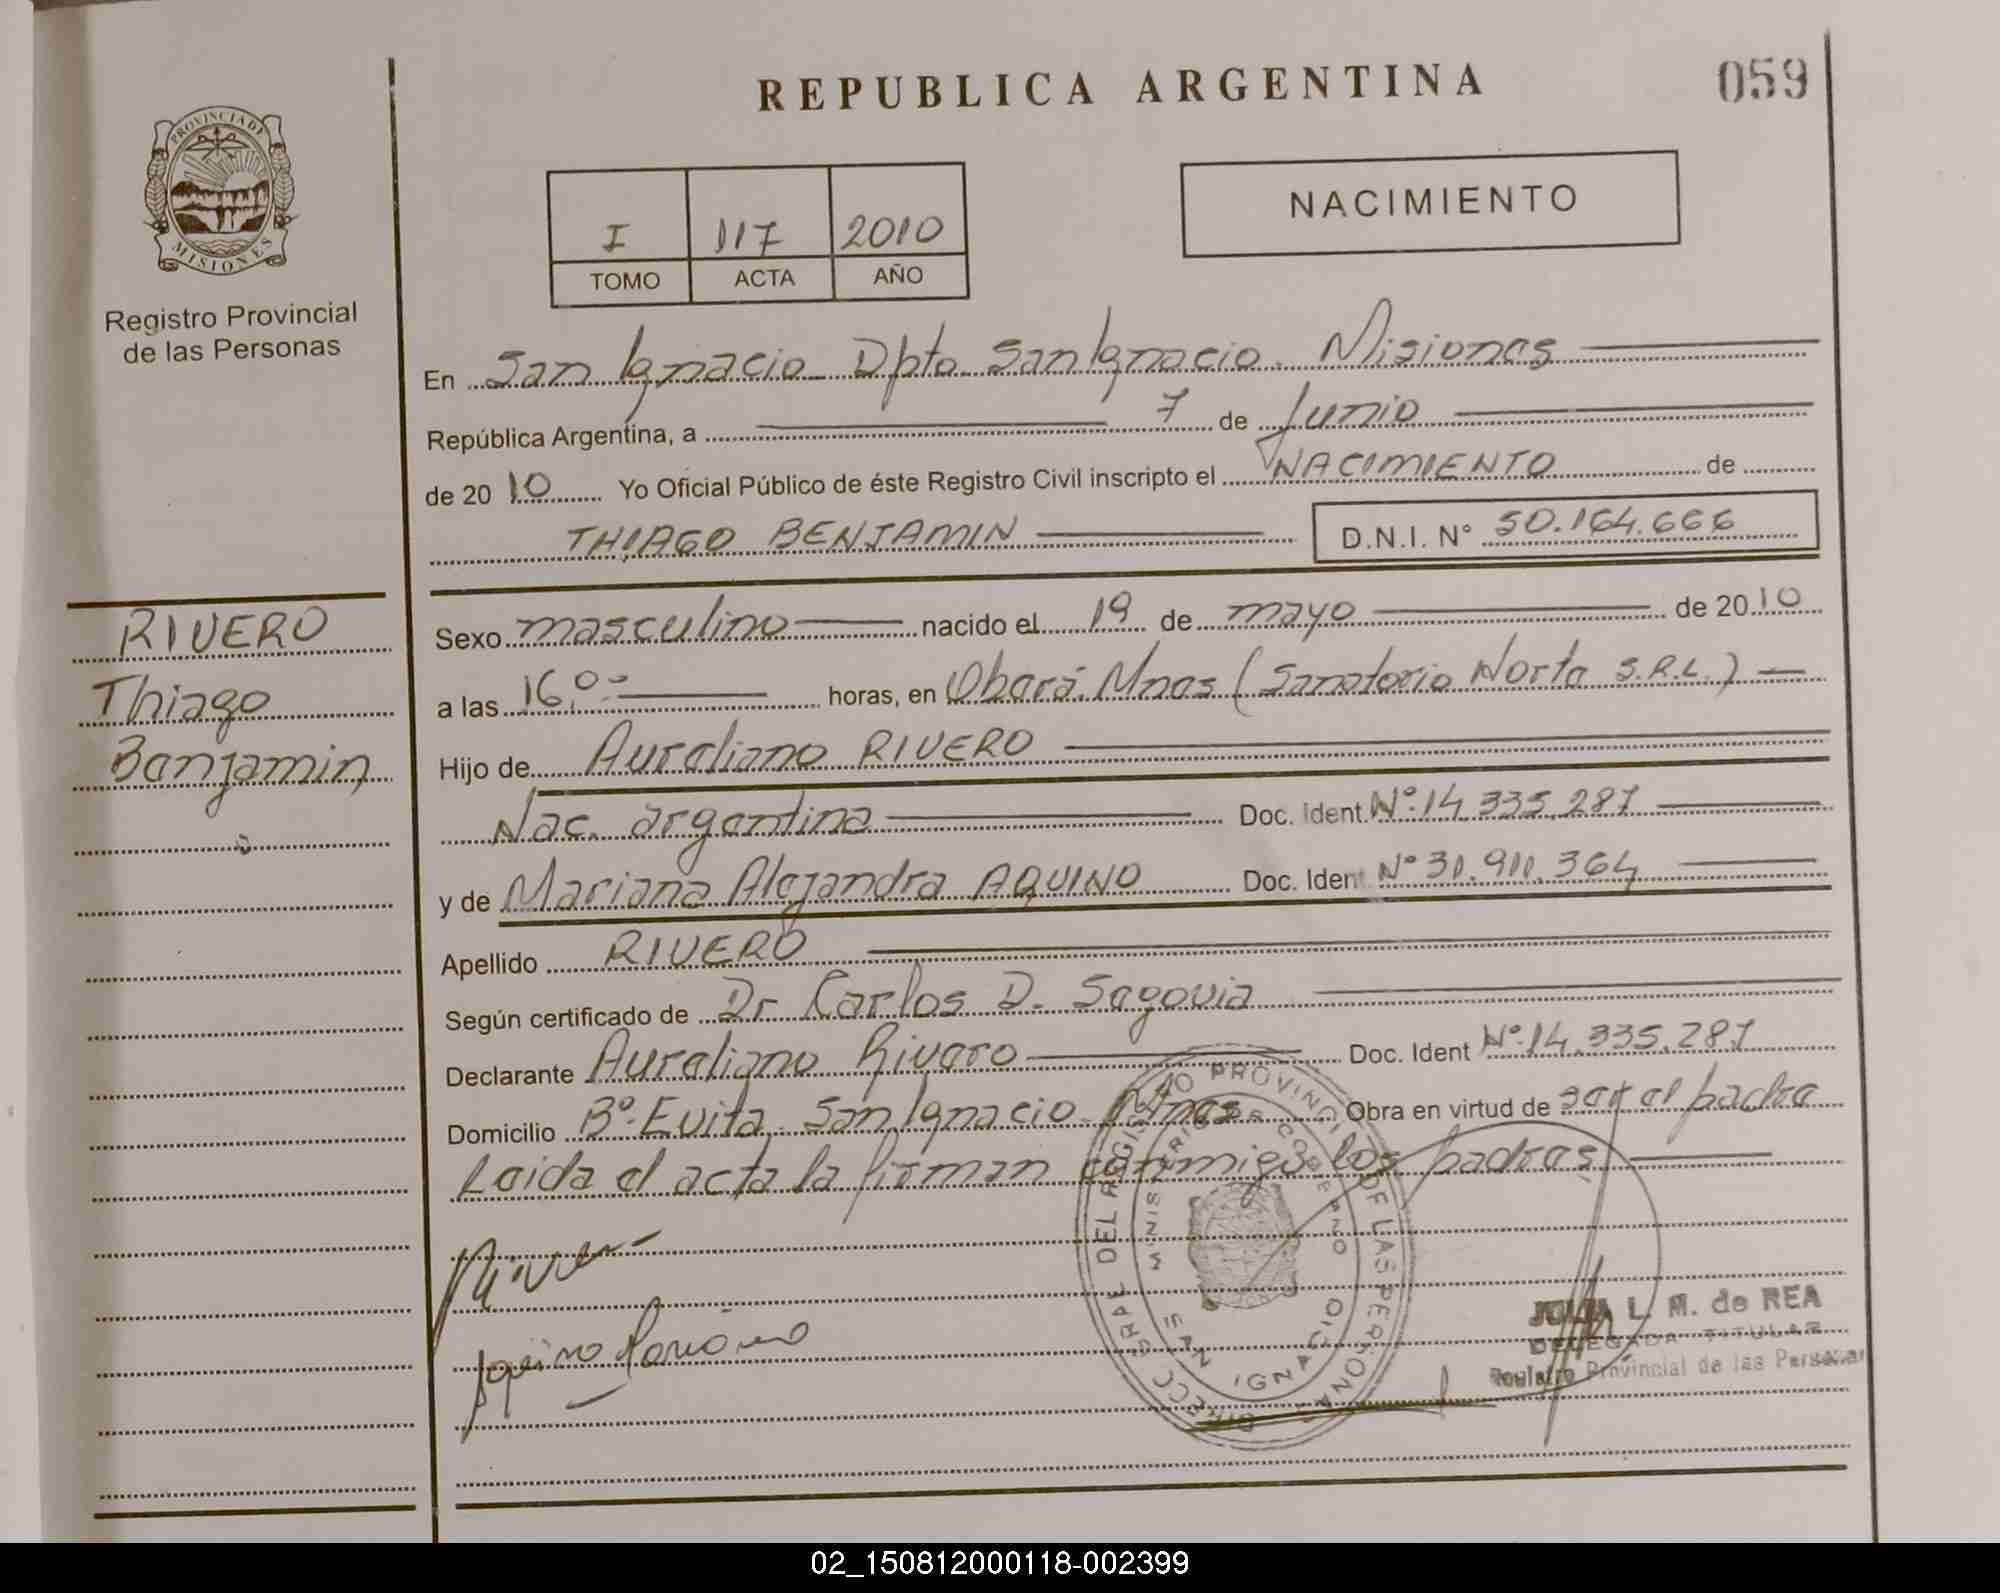 REPUBLICA ARGENTINA
059
PROVINCIA DE
MISIONES
Registro Provincial
de las Personas
I 117 2010
TOMO ACTA AÑO
NACIMIENTO
En San Ignacio Dpto San Ignacio. Misiones
República Argentina, a 7 de Junio
de 2010 Yo Oficial Público de éste Registro Civil inscripto el NACIMIENTO de
THIAGO BENJAMIN D.N.I. N° 50.164.666
RIVERO
Thiago
Benjamin
Sexo masculino nacido el 19 de mayo de 2010
a las 16,0- horas, en Oberá. Mnes (Sanatorio Norte S.R.L.)
Hijo de Aureliano RIVERO
Nac. argentina Doc. Ident. N°:14.335.287
y de Mariana Alejandra AQUINO Doc. Ident N° 30.911.364
Apellido RIVERO
Según certificado de Dr Carlos D. Segovia
Declarante Aureliano Rivero Doc. Ident N°:14.335.287
Domicilio B°: Evita. San Ignacio. Mnes Obra en virtud de ser el padre
Leida el acta la firman conmigo los padres,
Aquino Mariana
DIRECC. GRAL DEL REGISTRO PROVINCIAL DE LAS PERSONAS
MINISTERIO DE GOBIERNO
SAN IGNACIO
JULIA L. M. de REA
DELEGADA TITULAR
Registro Provincial de las Personas
02_150812000118-002399